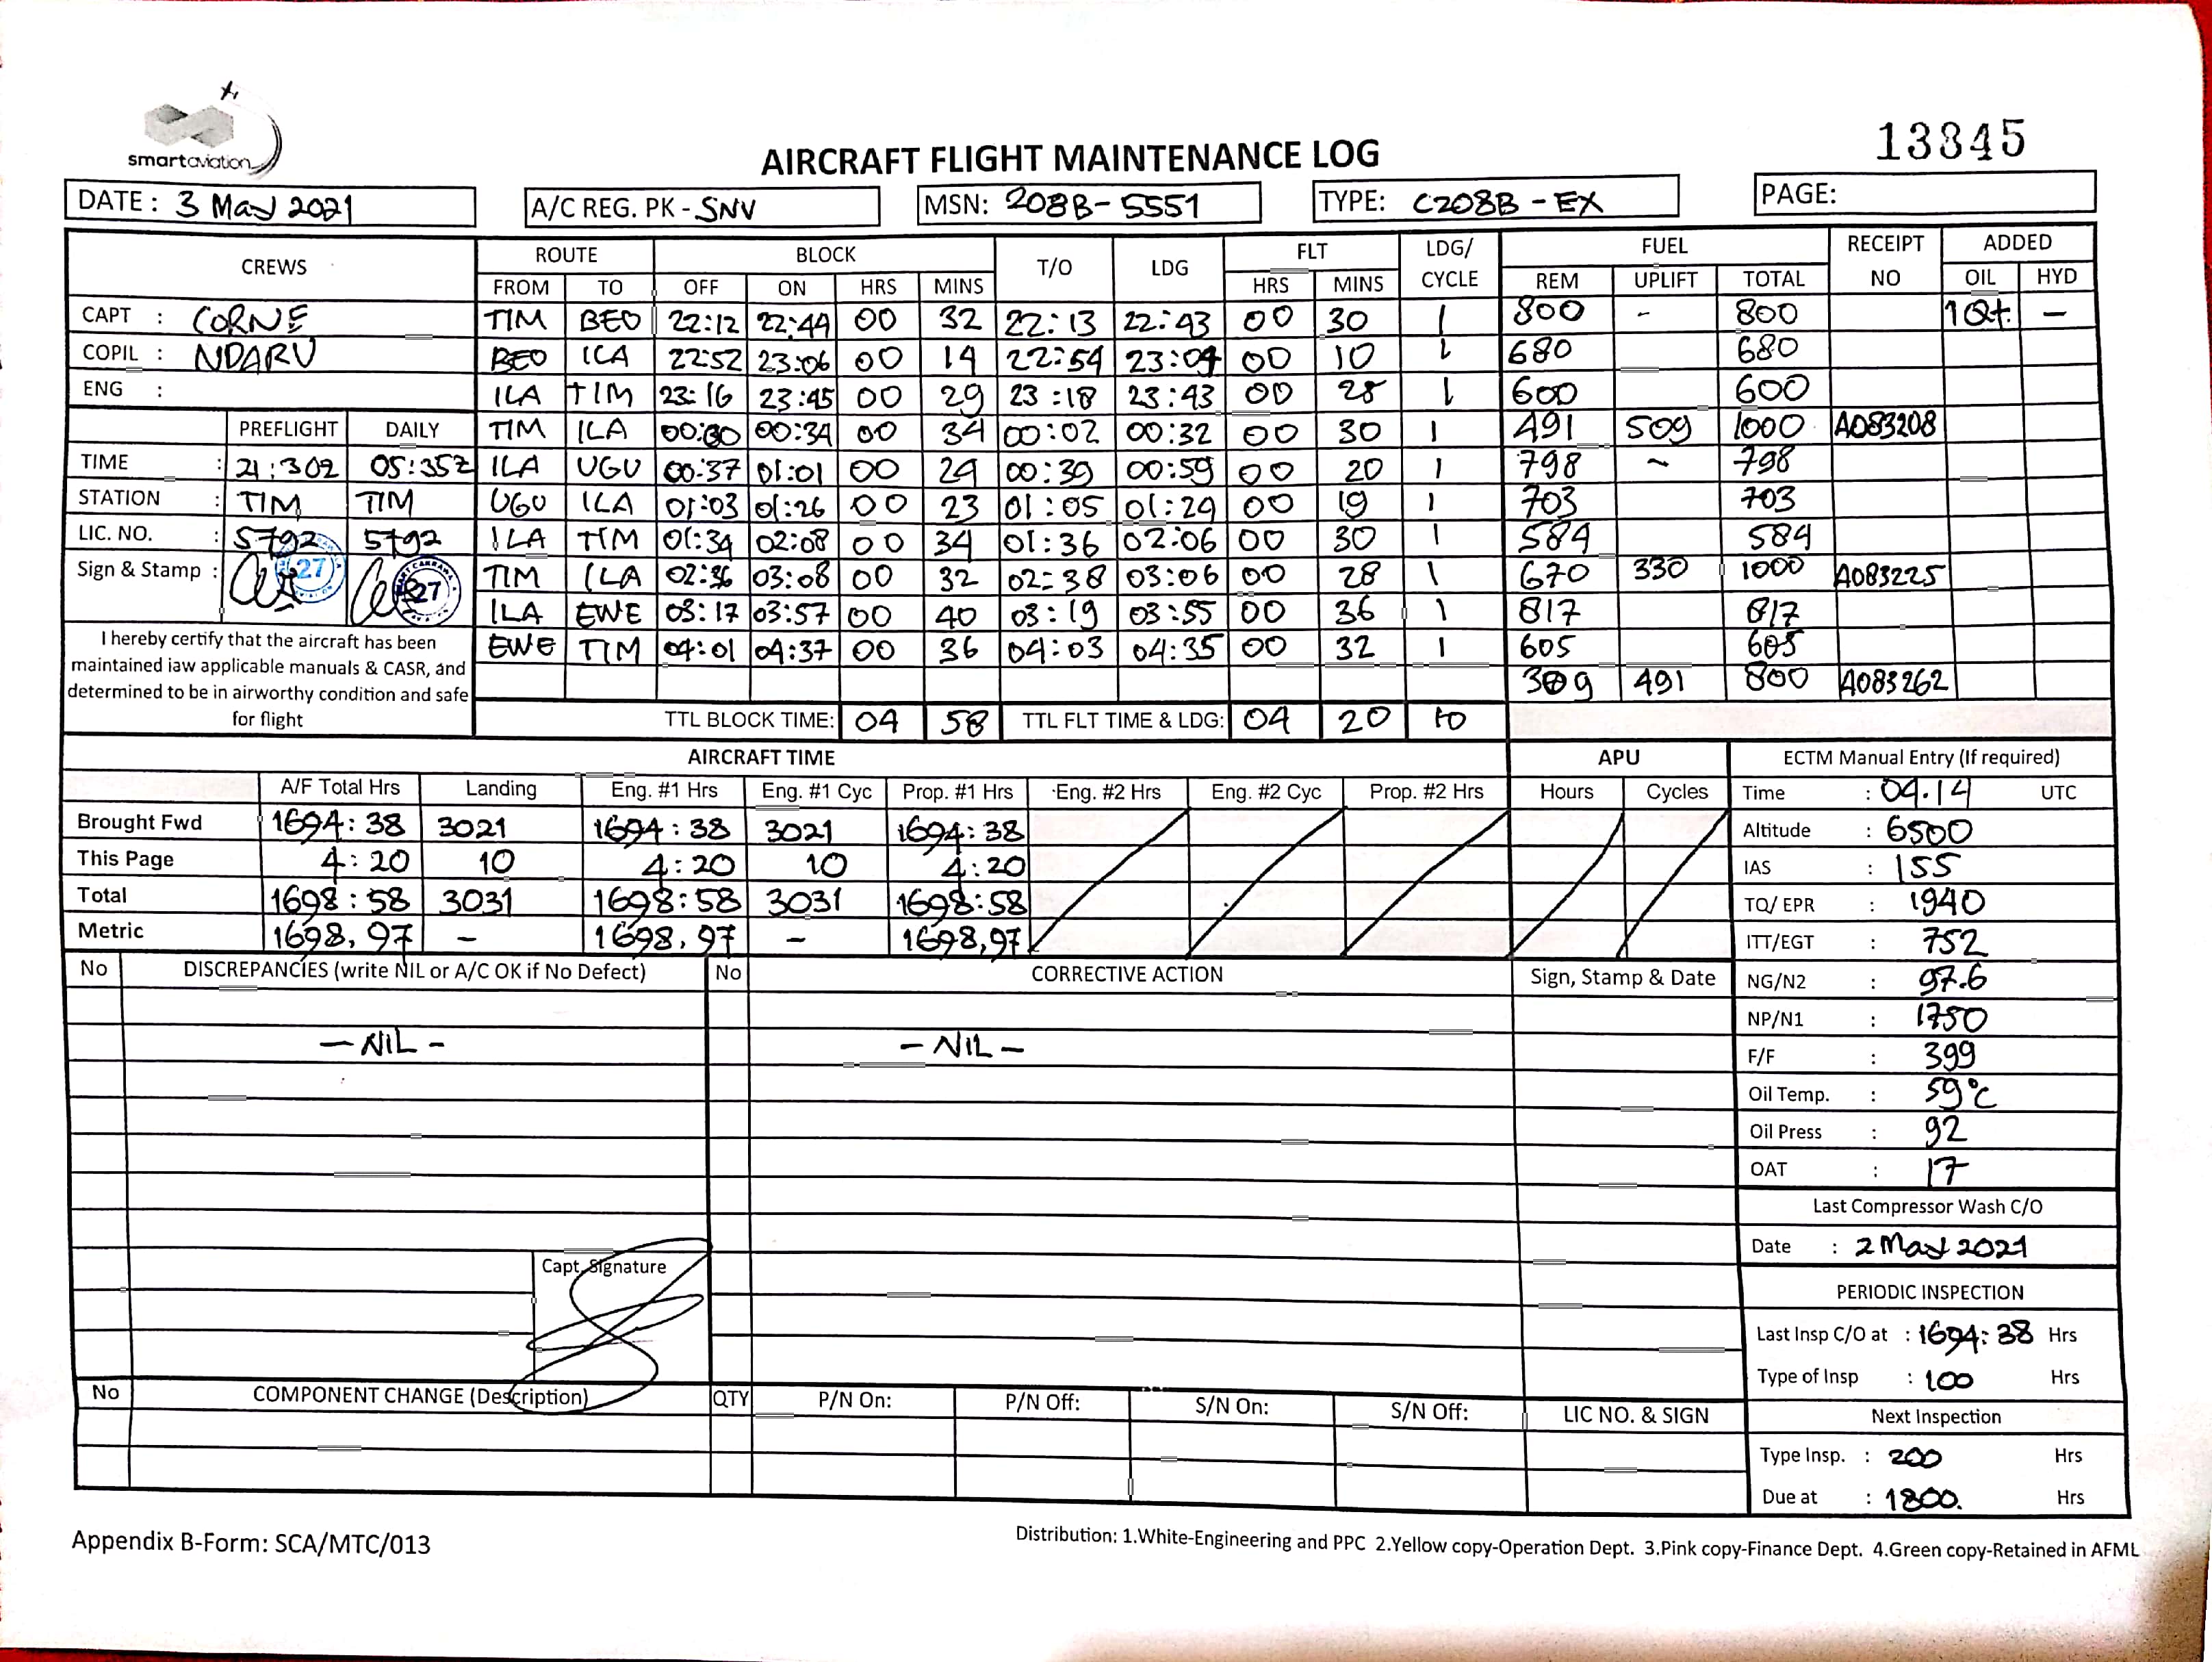 smartaviation
13345
AIRCRAFT FLIGHT MAINTENANCE LOG
DATE : 3 May 2021 A/C REG. PK - SNV MSN: 208B-5551 TYPE: C208B - EX PAGE:
CREWS ROUTE BLOCK T/O LDG FLT LDG/ CYCLE FUEL RECEIPT NO ADDED
FROM TO OFF ON HRS MINS HRS MINS REM UPLIFT TOTAL OIL HYD
CAPT : CORNE TIM BEO 22:12 22:44 00 32 22:13 22:43 00 30 1 800 - 800 1Qt. -
COPIL : NDARU BEO ICA 22:52 23:06 00 14 22:54 23:04 00 10 1 680 680
ENG : ILA TIM 23:16 23:45 00 29 23:18 23:43 00 25 1 600 600
PREFLIGHT DAILY TIM ILA 00:00 00:34 00 34 00:02 00:32 00 30 1 491 509 1000 A083208
TIME : 21:30Z 05:35Z ILA UGU 00:37 01:01 00 24 00:39 00:59 00 20 1 798 ~ 798
STATION : TIM TIM UGU ILA 01:03 01:26 00 23 01:05 01:24 00 19 1 703 703
LIC. NO. : 5792 5792 ILA TIM 01:34 02:08 00 34 01:36 02:06 00 30 1 584 584
Sign & Stamp : 27 27 TIM ILA 02:36 03:08 00 32 02:38 03:06 00 28 1 670 330 1000 A083225
ILA EWE 03:17 03:57 00 40 03:19 03:55 00 36 1 817 817
I hereby certify that the aircraft has been EWE TIM 04:01 04:37 00 36 04:03 04:35 00 32 1 605 605
maintained iaw applicable manuals & CASR, and
determined to be in airworthy condition and safe 309 491 800 A083262
for flight TTL BLOCK TIME: 04 58 TTL FLT TIME & LDG: 04 20 10
AIRCRAFT TIME APU ECTM Manual Entry (If required)
A/F Total Hrs Landing Eng. #1 Hrs Eng. #1 Cyc Prop. #1 Hrs Eng. #2 Hrs Eng. #2 Cyc Prop. #2 Hrs Hours Cycles Time : 04.14 UTC
Brought Fwd 1694:38 3021 1694:38 3021 1694:38 Altitude : 6500
This Page 4:20 10 4:20 10 4:20 IAS : 155
Total 1698:58 3031 1698:58 3031 1698:58 TQ/ EPR : 1940
Metric 1698,97 - 1698,97 - 1698,97 ITT/EGT : 752
No DISCREPANCIES (write NIL or A/C OK if No Defect) No CORRECTIVE ACTION Sign, Stamp & Date NG/N2 : 97.6
NP/N1 : 1750
- NIL - - NIL - F/F : 399
Oil Temp. : 59°C
Oil Press : 92
OAT : 17
Last Compressor Wash C/O
Date : 2 May 2021
Capt. Signature
PERIODIC INSPECTION
Last Insp C/O at : 1694:38 Hrs
Type of Insp : 100 Hrs
No COMPONENT CHANGE (Description) QTY P/N On: P/N Off: S/N On: S/N Off: LIC NO. & SIGN Next Inspection
Type Insp. : 200 Hrs
Due at : 1800. Hrs
Appendix B-Form: SCA/MTC/013
Distribution: 1.White-Engineering and PPC 2.Yellow copy-Operation Dept. 3.Pink copy-Finance Dept. 4.Green copy-Retained in AFML